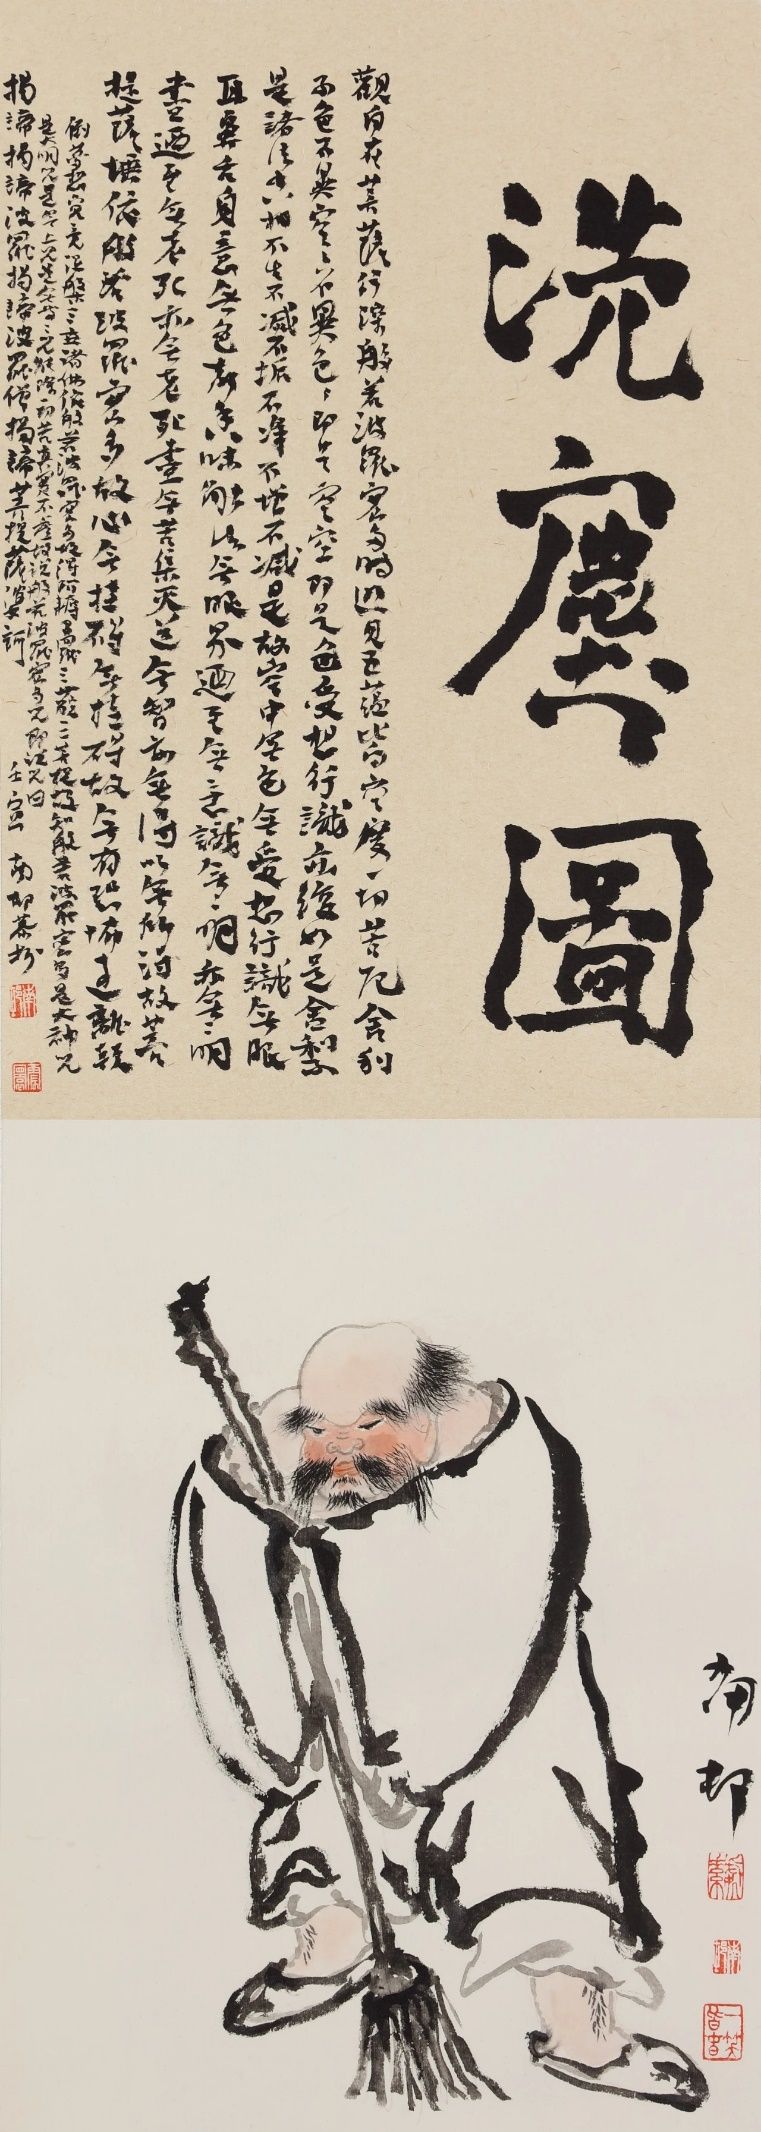 洗塵圖
觀自在菩薩行深般若波羅密多時照見五蘊皆空度一切苦厄舍利
子色不異空〻不異色〻即是空空即是色受想行識亦復如是舍利子
是諸法空相不生不滅不垢不淨不增不減是故空中無色無受想行識無眼
耳鼻舌身意無色聲香味觸法無眼界迺至無意識無〻明亦無〻明
盡迺至無老死亦無老死盡無苦集滅道無智亦無得以無所得故菩
提薩埵依般若波羅密多故心無挂礙無挂礙故無有恐怖遠離顛
倒夢想究竟涅槃三世諸佛依般若波羅密多故得阿耨多羅三藐三菩提故知般若波羅密多是大神咒
是大明咒是無上咒是無等〻咒能除一切苦真實不虛故說般若波羅密多咒即說咒曰
揭諦揭諦波羅揭諦波羅僧揭諦菩提薩婆訶
壬寅 南邨
南邨